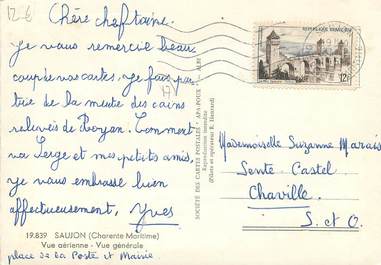 12-6
Chère cheftaine.
Je vous remercie beau
coup de vos cartes. Je fais par
tie de la meute des
relevés de Royan. Comment
va Serge et mes petits amis,
je vous embrasse bien
affectueusement, Yves
19.839 SAUJON (Charente Maritime)
Vue aérienne - Vue générale
place de la Poste et Mairie
SOCIÉTÉ DES CARTES POSTALES "APA-POUX" - ALBI
Reproduction interdite
RÉPUBLIQUE FRANÇAISE
12F
Mademoiselle Suzanne Marais
Sente - Castel
Chaville
S. et O.